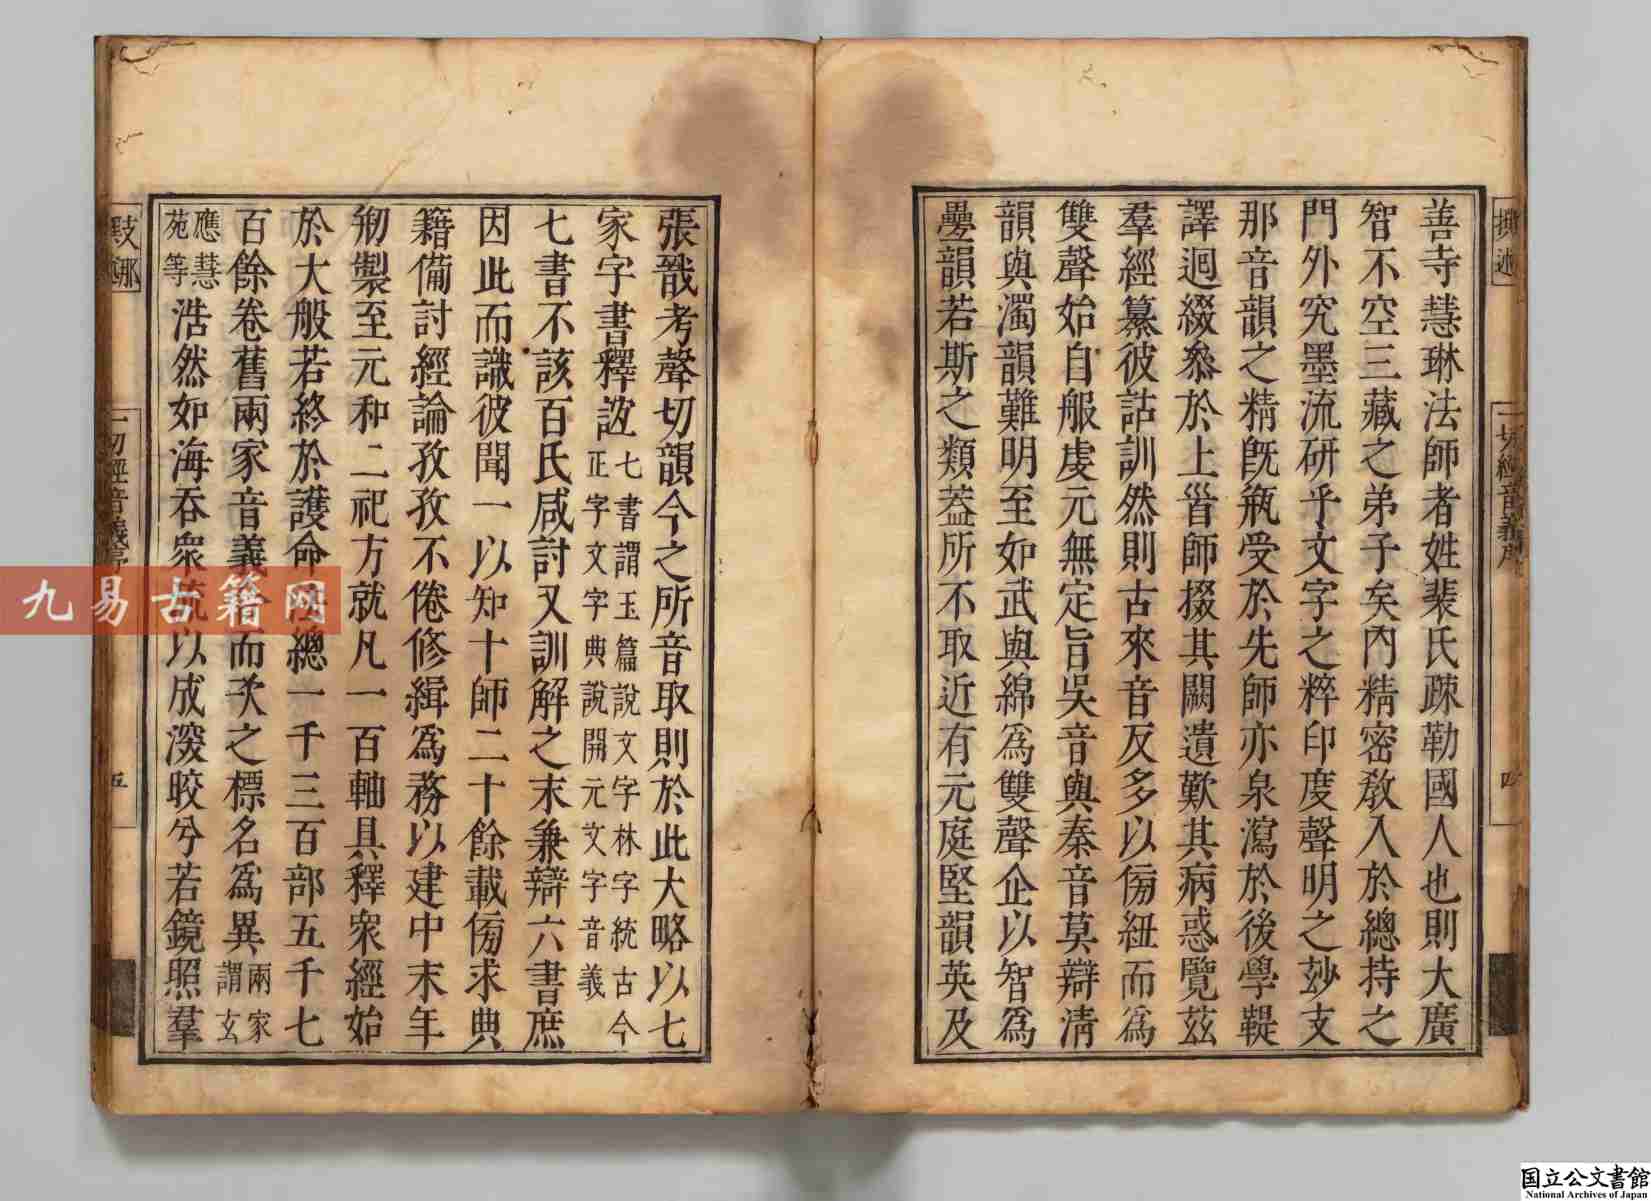 善寺慧琳法師者姓裴氏疎勒國人也則大廣
智不空三藏之弟子矣內精密教入於總持之
門外究墨流研乎文字之粹印度聲明之玅支
那音韻之精旣瓶受於先師亦泉瀉於後學鞮
譯迴綴參於上首師掇其闕遺歎其病惑覽茲
羣經纂彼詁訓然則古來音反多以傍紐而為
雙聲始自服虔元無定旨吳音與秦音莫辯清
韻與濁韻難明至如武與綿為雙聲企以智為
疊韻若斯之類蓋所不取近有元庭堅韻英及
張戩考聲切韻今之所音取則於此大略以七
家字書釋誼七書謂玉篇說文字林字統古今
正字文字典說開元文字音義
七書不該百氏咸討又訓解之末兼辯六書庶
因此而識彼聞一以知十師二十餘載傍求典
籍備討經論孜孜不倦修緝為務以建中末年
剏製至元和二祀方就凡一百軸具釋眾經始
於大般若終於護命總一千三百部五千七
百餘卷舊兩家音義而次之標名為異兩家
謂玄
應慧
苑等浩然如海吞衆以成深皎兮若鏡照羣
一切經音義序
四
五
九易古籍网
国立公文書館
National Archives of Japan